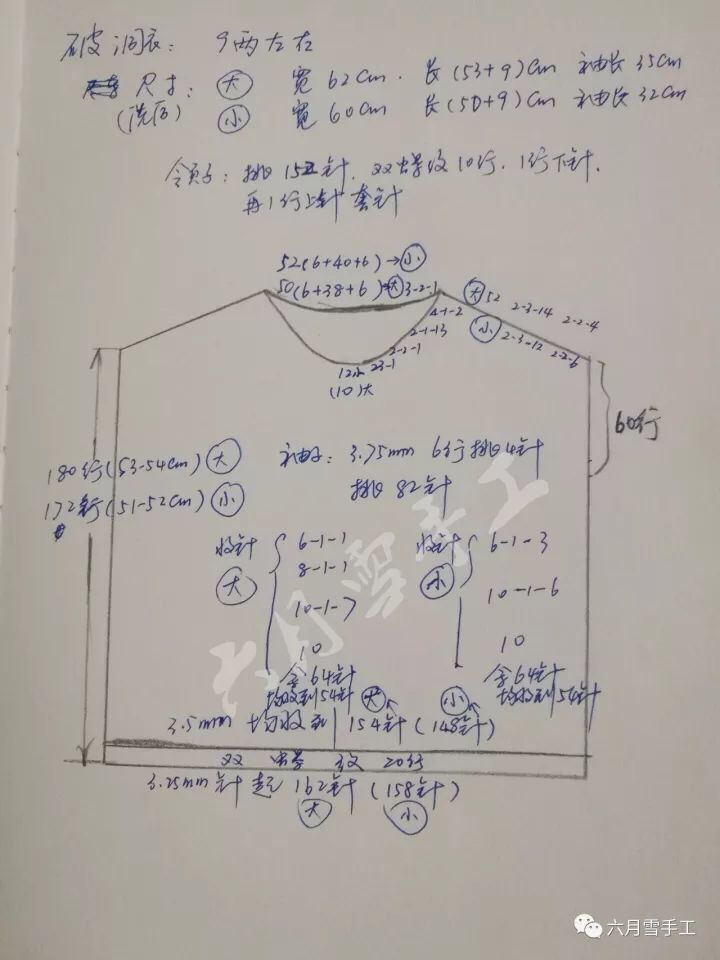 破洞衣: 9两左右
尺寸: 大 宽62cm. 长(53+9)cm 袖长35cm
(洗后) 小 宽60cm 长(50+9)cm 袖长32cm
领子: 挑152针, 双螺纹10行, 1行下针,
再1行上针 套针
52(6+40+6)→小
50(6+38+6)→大 3-2-1
大 52 2-3-14 2-2-4
小 2-3-12 2-2-6
4-1-2
2-1-13
2-2-1
2-3-1
12小
(10)大
60行
180行(53-54cm) 大
172行(51-52cm) 小
袖子: 3.75mm 6行挑4针
挑82针
收针 6-1-1
大 8-1-1
10-1-7
10
余64针
均收到54针
收针 6-1-3
小 10-1-6
10
余64针
均收到54针
大 小
3.5mm 均收到 154针(148针)
双 螺 纹 20行
3.25mm针 起 162针 (158针)
大 小
六月雪手工
六月雪手工